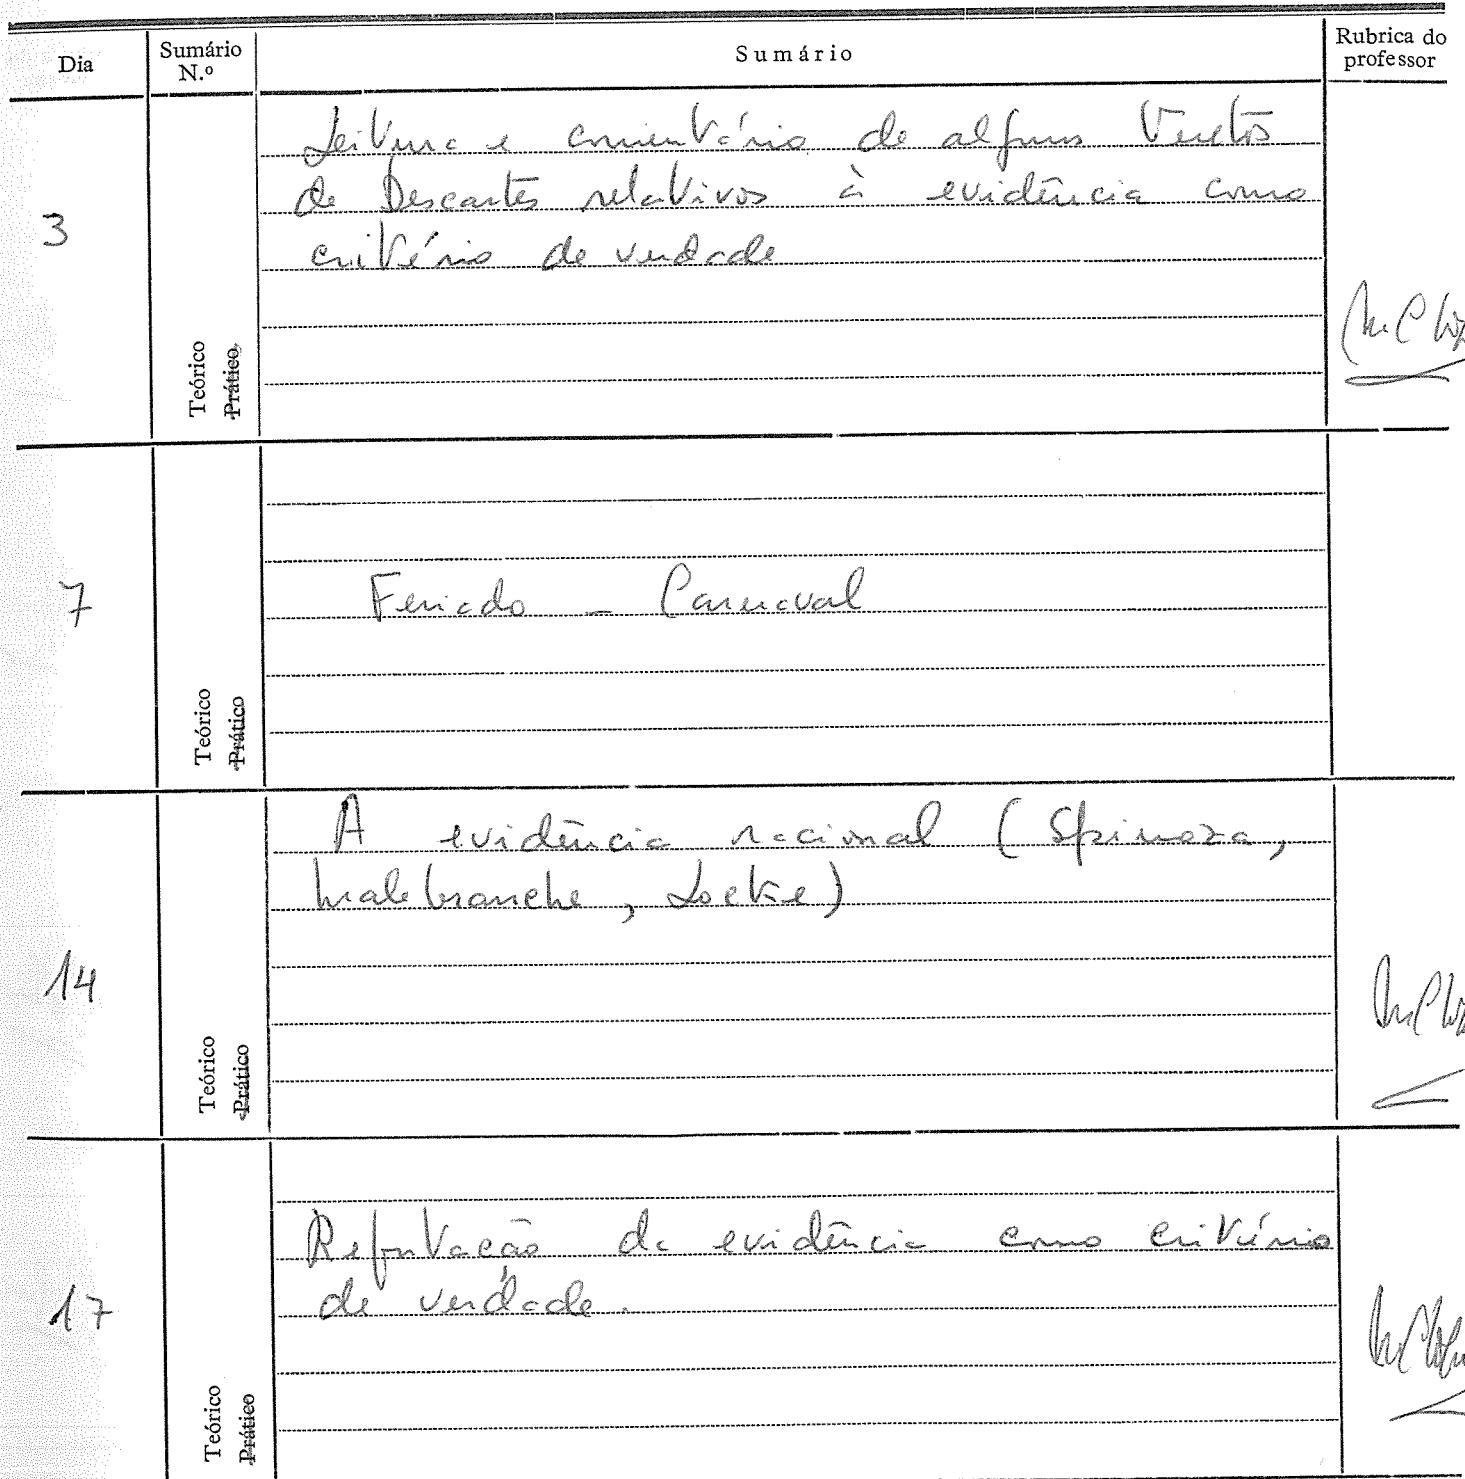 Dia
Sumário
N.º
Sumário
Rubrica do
professor
3
Teórico
Prático
Leitura e comentário de alguns textos
de Descartes relativos à evidência como
critério de verdade
7
Teórico
Prático
Feriado - Carnaval
14
Teórico
Prático
A evidência racional (Spinoza,
Malebranche, Locke)
17
Teórico
Prático
Refutação da evidência como critério
de verdade.